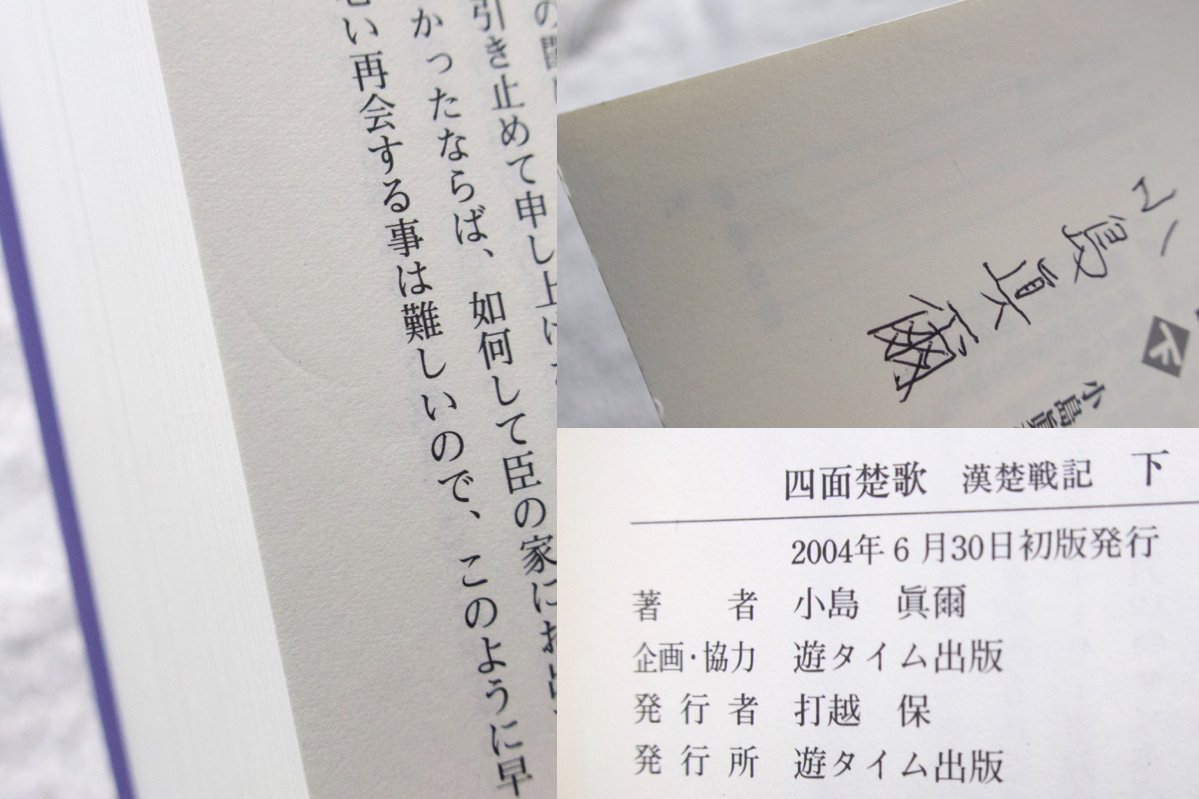 引き止めて申し上げ
かったならば、如何して臣の家に
い再会する事は難しいので、このように早
小島眞爾
下
小島眞
四面楚歌 漢楚戦記 下
2004年6月30日初版発行
著者 小島 眞爾
企画・協力 遊タイム出版
発行者 打越 保
発行所 遊タイム出版